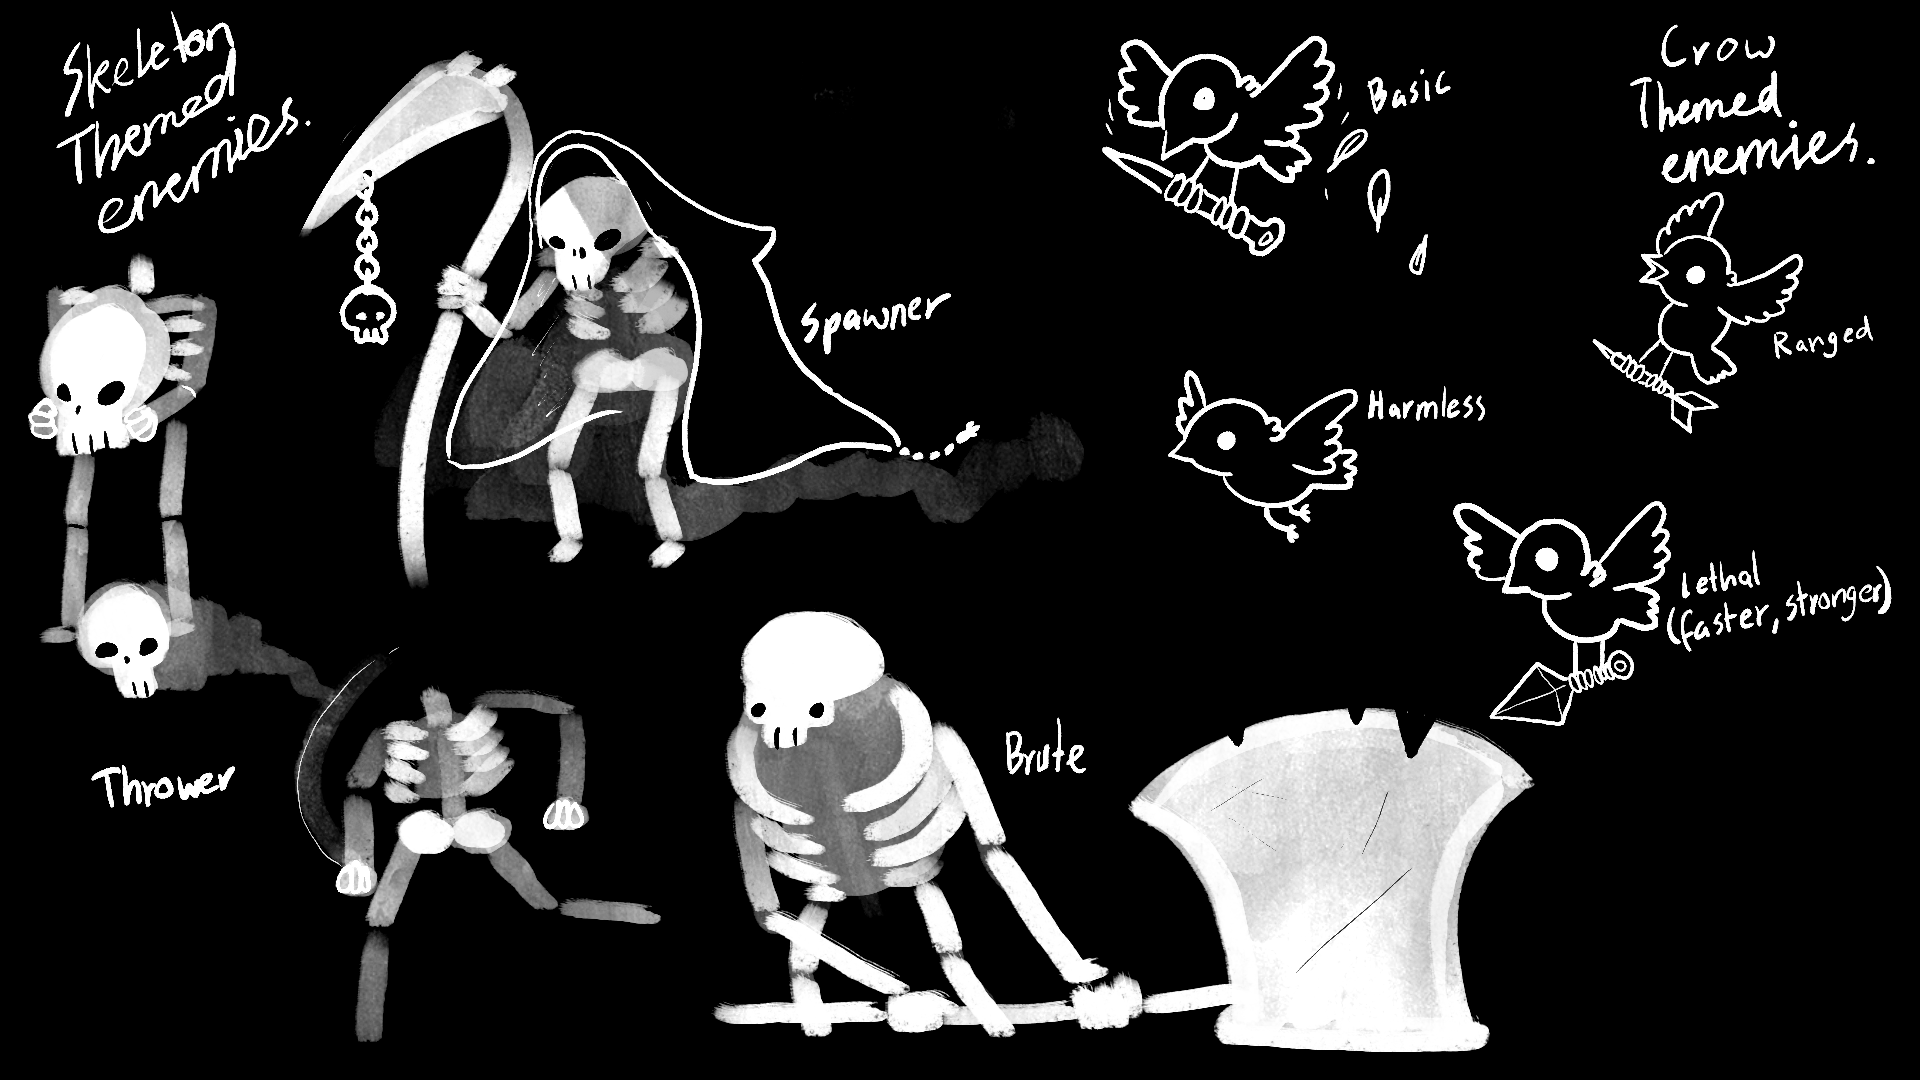 Skeleton
Themed
enemies.
Spawner
Thrower
Brute
Crow
Themed
enemies.
Basic
Ranged
Harmless
Lethal
(faster, stronger)